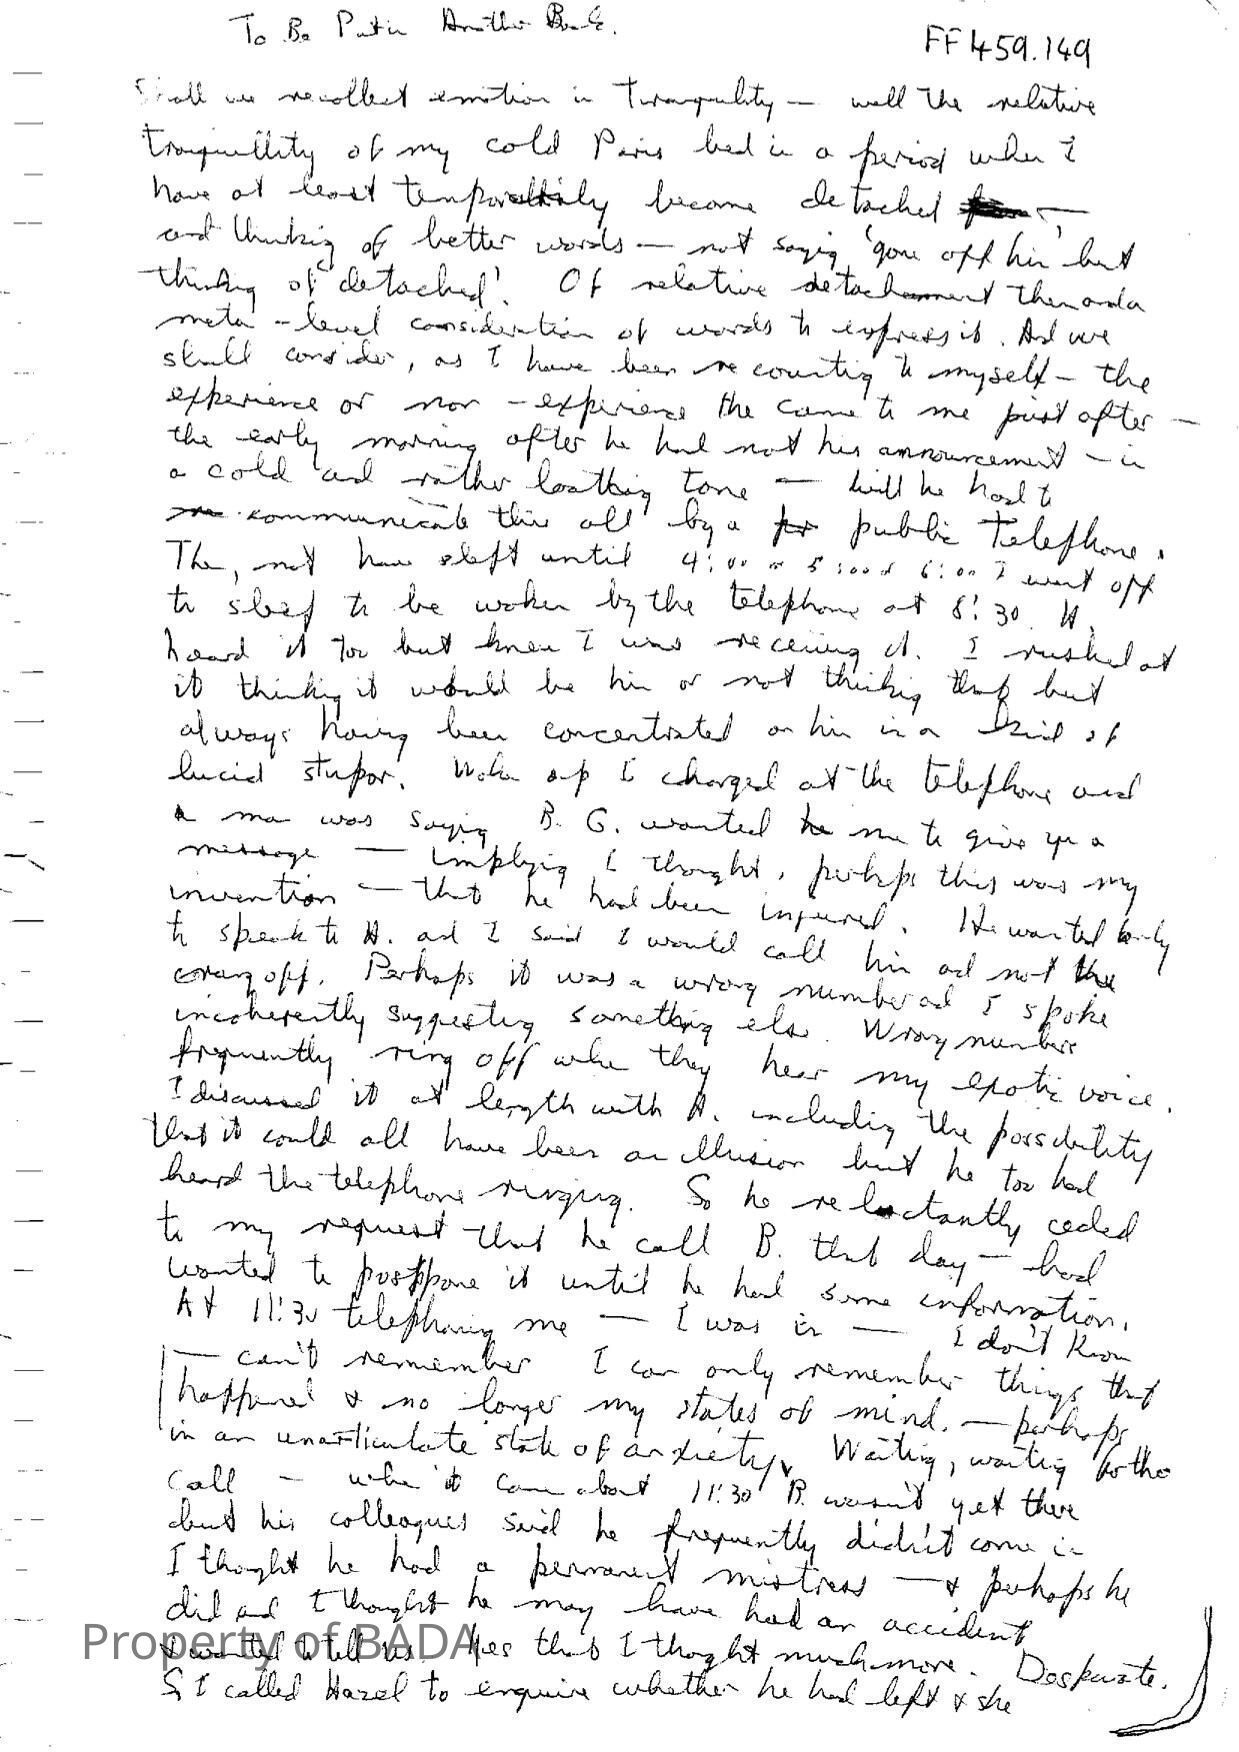 To Be Put in Another Book.
FF459.149
Shall we recollect emotion in Tranquility — well the relative
tranquillity of my cold Paris bed in a period when I
have at least temporarily become detached —
and thinking of better words — not saying 'gone off him' but
thinking of 'detached'. Of relative detachment then and a
meta-level consideration of words to express it. And we
shall consider, as I have been recounting to myself — the
experience or non-experience the came to me just after —
the early morning after he had not his announcement — in
a cold and rather loathing tone — he had to
communicate this all by a public Telephone.
The, not have slept until 4:00 or 5:00 or 6:00 I went off
to sleep to be woken by the telephone at 8:30. A.
heard it too but knew I was receiving it. I rushed at
it thinking it would be him or not thinking that but
always having been concentrated on him in a kind of
lucid stupor. Woken up I charged at the telephone and
a man was saying B. G. wanted me to give you a
message — implying I thought, perhaps this was my
invention — that he had been injured. He wanted only
to speak to A. and I said I would call him and not the
rang off. Perhaps it was a wrong number and I spoke
incoherently suggesting something else. Wrong numbers
frequently ring off when they hear my exotic voice.
I discussed it at length with A. including the possibility
that it could all have been an illusion but he too had
heard the telephone ringing. So he reluctantly ceded
to my request that he call B. that day — had
wanted to postpone it until he had some information.
At 11:30 telephoning me — I was in — I don't know
— can't remember I can only remember things that
happened & no longer my states of mind. — perhaps
in an unarticulate state of anxiety. Waiting, waiting for the
call — when it came about 11:30 B. wasn't yet there
but his colleagues said he frequently didn't come in
I thought he had a permanent mistress — & perhaps he
did and I thought he may have had an accident
& wanted to tell us. Yes that I thought much more. Desperate.
So I called Hazel to enquire whether he had left & she
Property of BADA